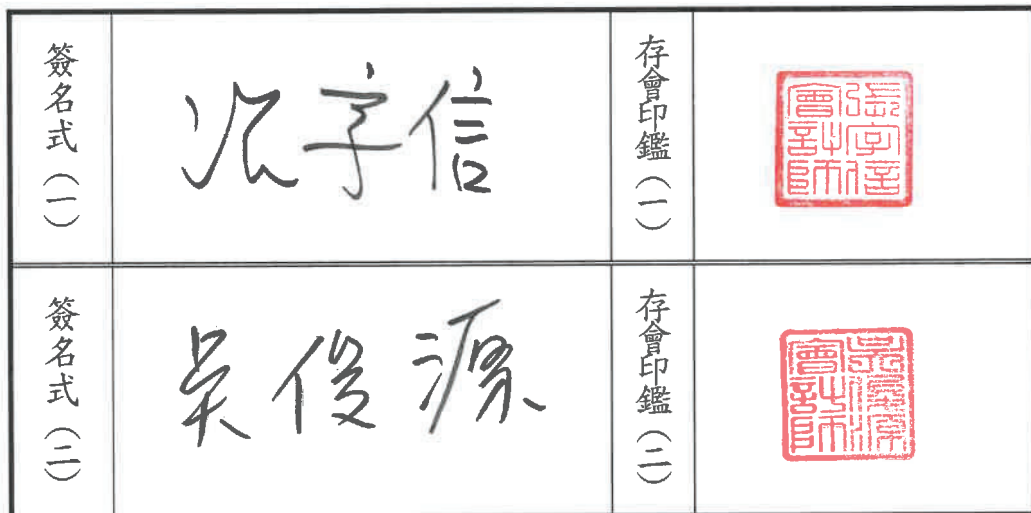 簽名式（一）
張字信
存會印鑑（一）
張字信會計師
簽名式（二）
吳俊源
存會印鑑（二）
吳俊源會計師